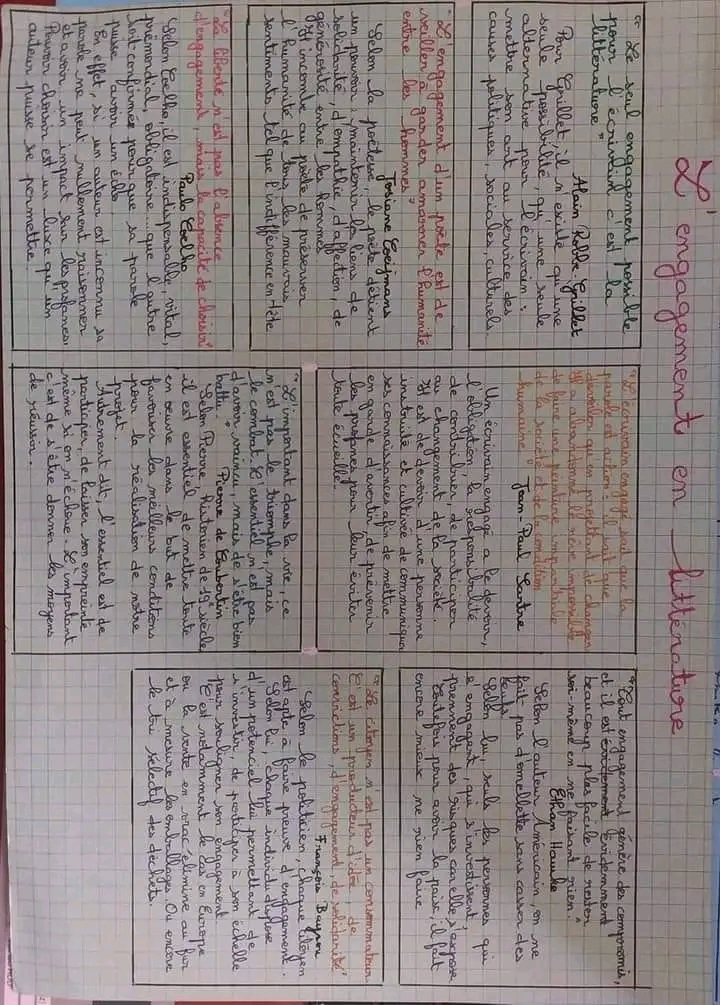 L'engagement en littérature
"Le seul engagement possible
pour l'écrivain c'est la
littérature"
Alain Robbe-Grillet
Pour Grillet, il n'existe qu'une
seule possibilité, qu'une seule
alternative pour l'écrivain :
mettre son art au service des
causes politiques, sociales, culturels.
"L'engagement d'un poète est de
veiller à garder amarrer l'humanité
entre les hommes"
Josiane Coeijmans
Selon la poéteuse, le poète détient
un pouvoir, maintenir les liens de
solidarité, d'empathie, d'affection, de
générosité entre les hommes
Il incombe au poète de préserver
l'humanité de tous les mauvais
sentiments tel que l'indifférence en tête
"La liberté n'est pas l'absence
d'engagement, mais la capacité de choisir"
Paulo Coelho
Selon Coelho, il est indispensable, vital,
primordial, obligatoire... que l'autre
soit confirmée pour que sa parole
puisse avoir un écho.
En effet, si un auteur est inconnu sa
parole ne peut nullement raisonner
et avoir un impact sur les profanes.
Pouvoir choisir est un luxe qu'un
auteur puisse se permettre.
"L'écrivain engagé sait que la
parole est action : il sait que
dévoiler qu'en projetant de changer.
Il a abandonné le rêve impossible
de faire une peinture impartiale
de la société et de la condition
humaine"
Jean-Paul Sartre
Un écrivain engagé a le devoir,
l'obligation, la responsabilité
de contribuer, de participer
au changement de la société.
Il est de devoir d'une personne
instruite et cultivée de communiquer
ses connaissances afin de mettre
en garde d'avertir, de prévenir
les profanes pour leur éviter
toute écueille
"L'important dans la vie, ce
n'est pas le triomphe, mais
le combat. L'essentiel n'est pas
d'avoir vaincu, mais de s'être bien
battu."
Pierre de Coubertin
Selon Pierre, historien de 19e siècle
il est essentiel de mettre toute
en oeuvre dans le but de
favoriser les meilleurs conditions
pour la réalisation de notre
projet.
Autrement dit, l'essentiel est de
participer, de laisser son empreinte
même si on n'échoue. L'important
c'est de s'être donner les moyens
de réussir.
"Tout engagement génère des compromis,
et il est évidement évidemment
beaucoup plus facile de rester
soi-même en ne faisant rien."
Ethan Hawke
Selon l'auteur Américain, on ne
fait pas d'omellette sans casser des
oeufs.
Selon lui, seuls les personnes qui
s'engagent, qui s'investissent,
prennent des risques car elle s'expose
Toutefois pour avoir la paix, il faut
encore mieux ne rien faire
"Le citoyen n'est pas un consommateur.
C'est un producteur d'idée de
convictions, d'engagement, de solidarité"
François Bayrou
Selon le politicien, chaque citoyen
est apte à faire preuve d'engagement.
Selon lui, chaque individu dispose
d'un potenciel lui permettant de
s'investir, de participer à son échelle
pour souligner son engagement
C'est notamment le cas en Europe
où la vente en vrac élimine au fur
et à mesure les emballages. Ou encore
le tri sélectif des déchets.